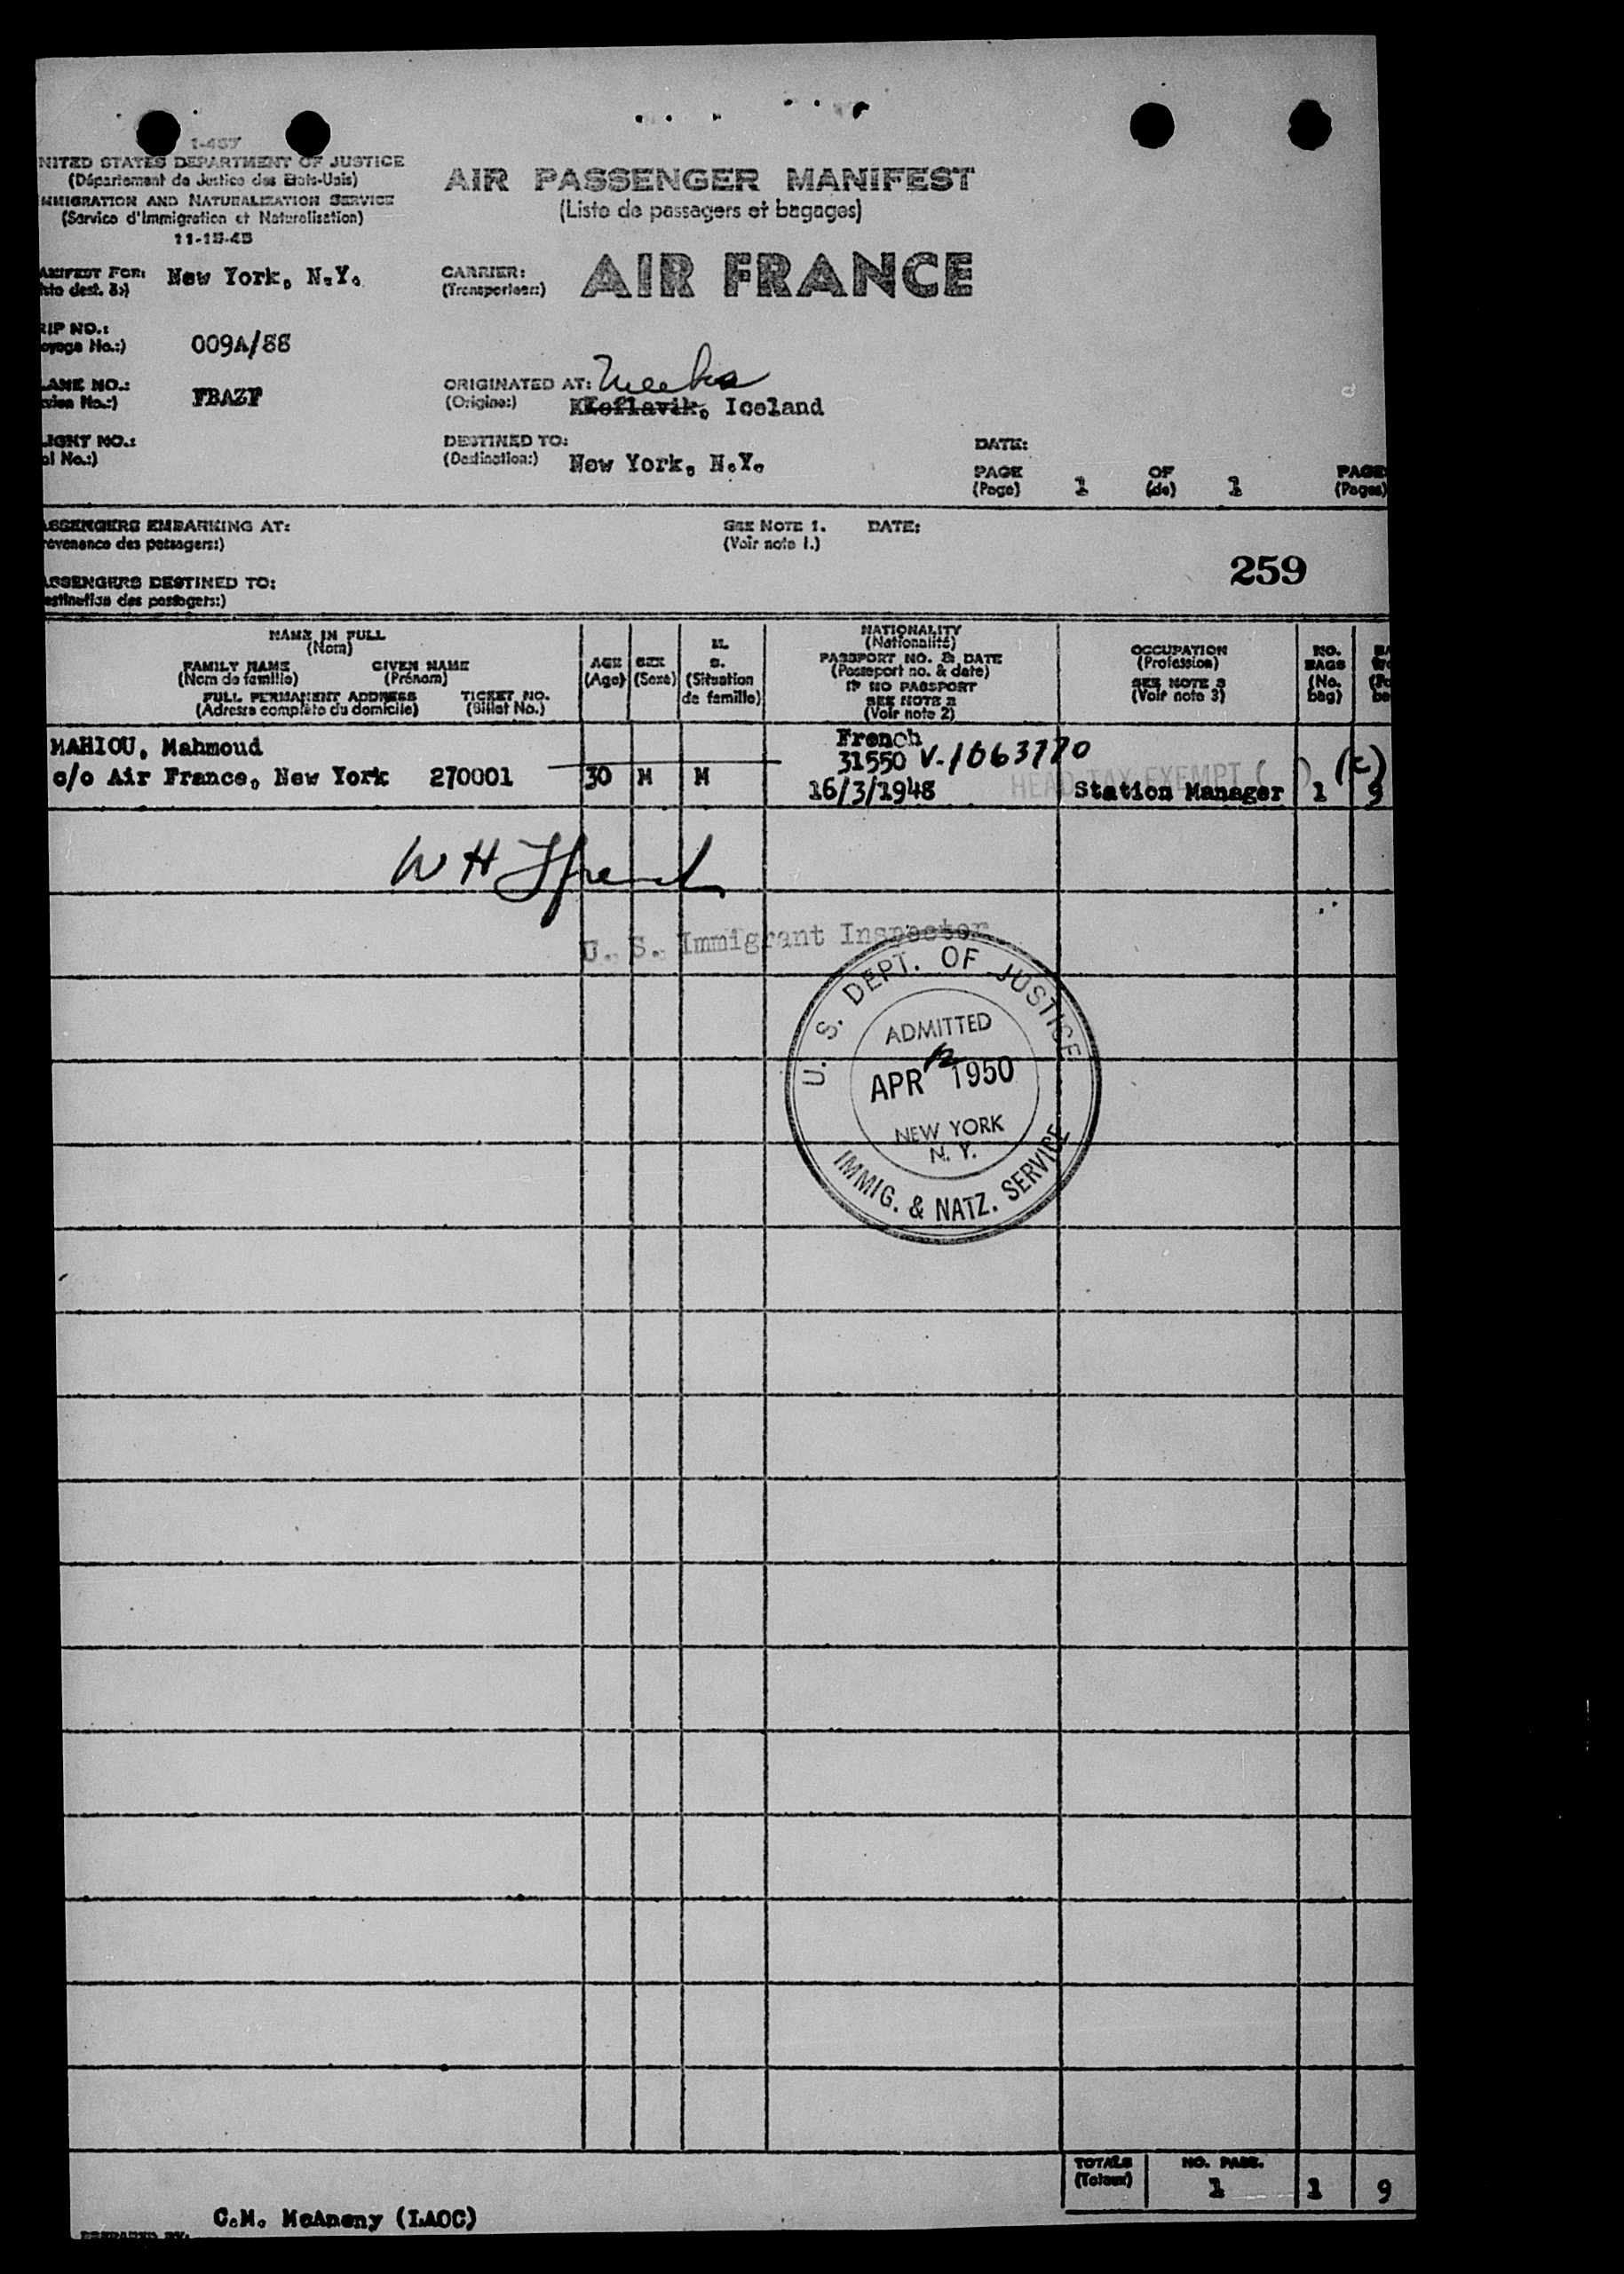 1-467
NITED STATES DEPARTMENT OF JUSTICE
(Département de Justice des Etats-Unis)
MMIGRATION AND NATURALIZATION SERVICE
(Service d'Immigration et Naturalisation)
11-15-45
AIR PASSENGER MANIFEST
(Liste de passagers et bagages)
ANIFEST FOR: New York, N.Y.
CARRIER: AIR FRANCE
(Transporteur:)
RIP NO.:
oyage No.:) 009A/88
LANE NO.:
No.:) FBAZF
ORIGINATED AT:
(Origine:) Keflavik, Iceland
LIGHT NO.:
ol No.:)
DESTINED TO:
(Destination:) New York, N.Y.
DATE:
PAGE 1 OF 1 PAGE
(Page) (de) (Pages)
ASSENGERS EMBARKING AT: SEE NOTE 1. DATE:
rovenance des passagers:) (Voir note 1.)
259
ASSENGERS DESTINED TO:
estination des passagers:)
NAME IN FULL
(Nom)
FAMILY NAME GIVEN NAME
(Nom de famille) (Prénom)
FULL PERMANENT ADDRESS TICKET NO.
(Adresse complète du domicile) (Billet No.)
AGE
(Age)
SEX
(Sexe)
M.
S.
(Situation
de famille)
NATIONALITY
(Nationalité)
PASSPORT NO. & DATE
(Passeport no. & date)
IF NO PASSPORT
SEE NOTE 2
(Voir note 2)
OCCUPATION
(Profession)
SEE NOTE 3
(Voir note 3)
NO.
BAGS
(No.
bag)
MAHIOU, Mahmoud French
c/o Air France, New York 270001 30 M M 31550 V-1063770 (c)
16/3/1948 HEAD TAX EXEMPT ( ) Station Manager 1 9
W H French
U. S. Immigrant Inspector
U. S. DEPT. OF JUSTICE
ADMITTED
APR 12 1950
NEW YORK
N. Y.
IMMIG. & NATZ. SERVICE
TOTALS NO. PASS.
(Totaux) 1 1 9
C.M. McAneny (IAOC)
PREPARED BY: